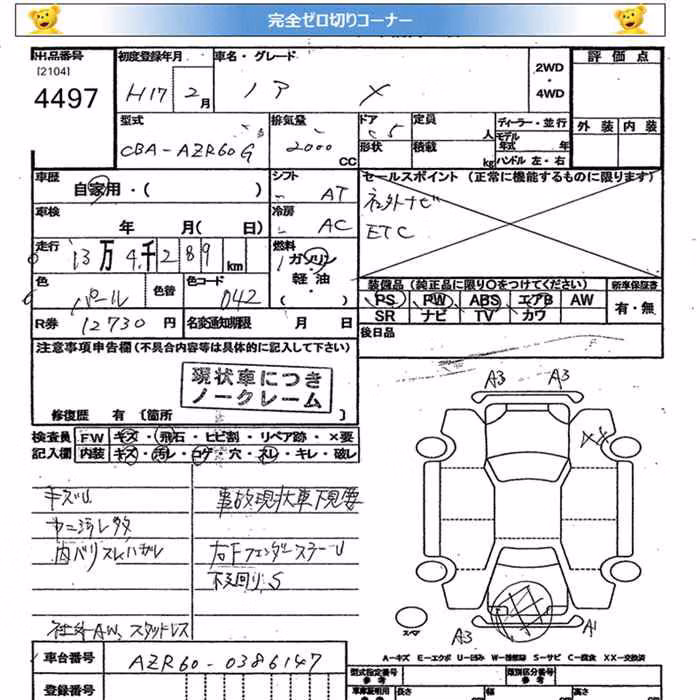 完全ゼロ切りコーナー
出品番号 初度登録年月 車名・グレード 評価点
[2104]
4497 H17 2月 ノア X 2WD・4WD
型式 排気量 ドア 定員 ディーラー・並行 外装 内装
CBA-AZR60G 2000 CC 5 人 モデル年式 年
形状 積載 kg ハンドル 左・右
車歴 シフト セールスポイント (正常に機能するものに限ります)
自家用・( ) AT 社外ナビ
車検 冷房
年 月( 日) AC ETC
走行 燃料
13万4千289km ガソリン・軽油・( )
色 色替 色コード 装備品 (純正品に限り○をつけてください) 新車保証書
パール 042 PS PW ABS エアB AW 有・無
SR ナビ TV カワ
R券 12730円 名変通知期限 月 日 後日品
注意事項申告欄 (不具合内容等は具体的に記入して下さい)
現状車につき
ノークレーム
A3 A3
修復歴 有 (箇所
検査員 FW キズ・飛石・ヒビ割・リペア跡・×要
記入欄 内装 キズ・汚れ・コゲ・穴・スレ・キレ・破レ
キズU 事故現状車下見要
内バリスレハガレ 右FフェンダーステーU
社外AW、スタッドレス
スペア A3 A1
A-キズ E-エクボ U-凹み W-補修跡 S-サビ C-腐食 XX-交換済
車台番号 AZR60-0386147 型式指定番号 参考 類別区分番号 参考
登録番号 車庫証明用 参考 長さ 幅 高さ